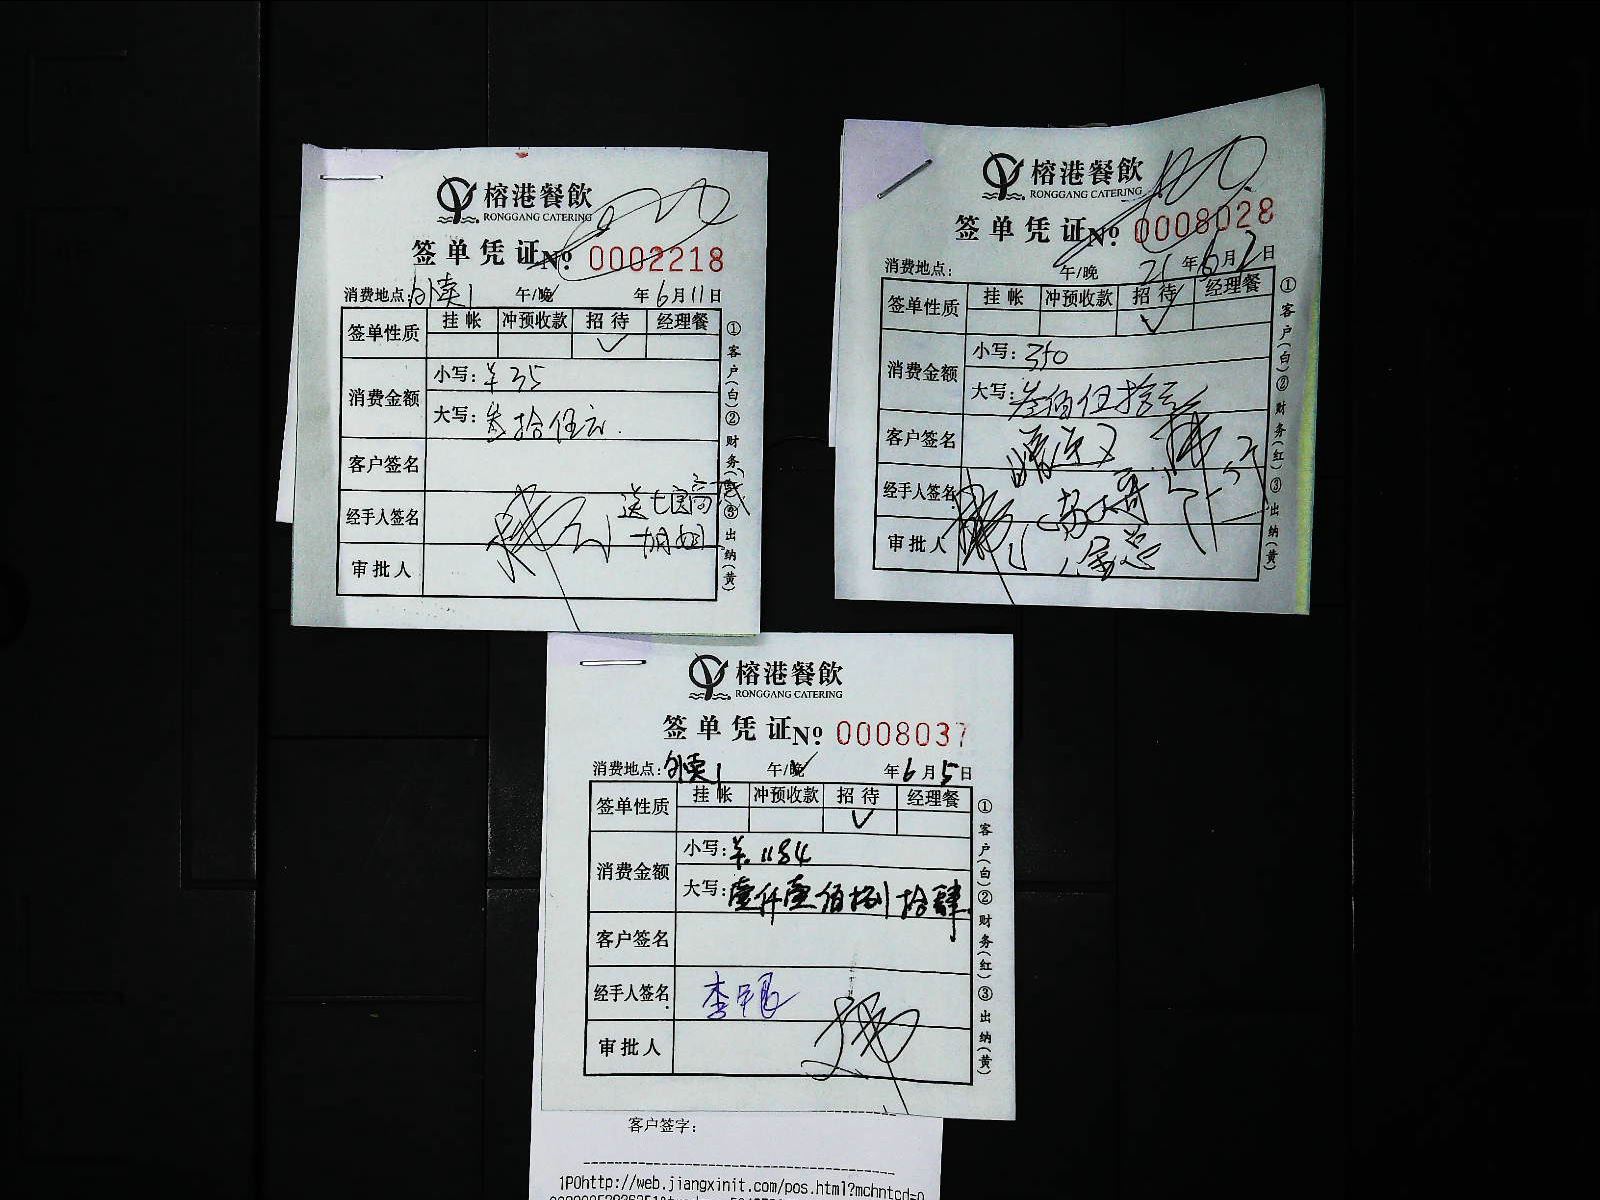 榕港餐飲
RONGGANG CATERING
签单凭证 № 0002218
消费地点: 外卖1 午/晚 年6月11日
签单性质 挂帐 冲预收款 招待 经理餐
✓
消费金额 小写: ¥35
大写: 叁拾伍元.
客户签名
经手人签名
审批人
①客户(白)②财务(红)③出纳(黄)
榕港餐飲
RONGGANG CATERING
签单凭证 № 0008028
消费地点: 午/晚 21年6月2日
签单性质 挂帐 冲预收款 招待 经理餐
✓
消费金额 小写: 350
大写: 叁佰伍拾元
客户签名
经手人签名
审批人
①客户(白)②财务(红)③出纳(黄)
榕港餐飲
RONGGANG CATERING
签单凭证 № 0008037
消费地点: 外卖1 午/晚 年6月5日
签单性质 挂帐 冲预收款 招待 经理餐
✓
消费金额 小写: ¥.1184
大写: 壹仟壹佰捌拾肆
客户签名
经手人签名
审批人
①客户(白)②财务(红)③出纳(黄)
客户签字:
1P0http://web.jiangxinit.com/pos.html?mchntcd=0